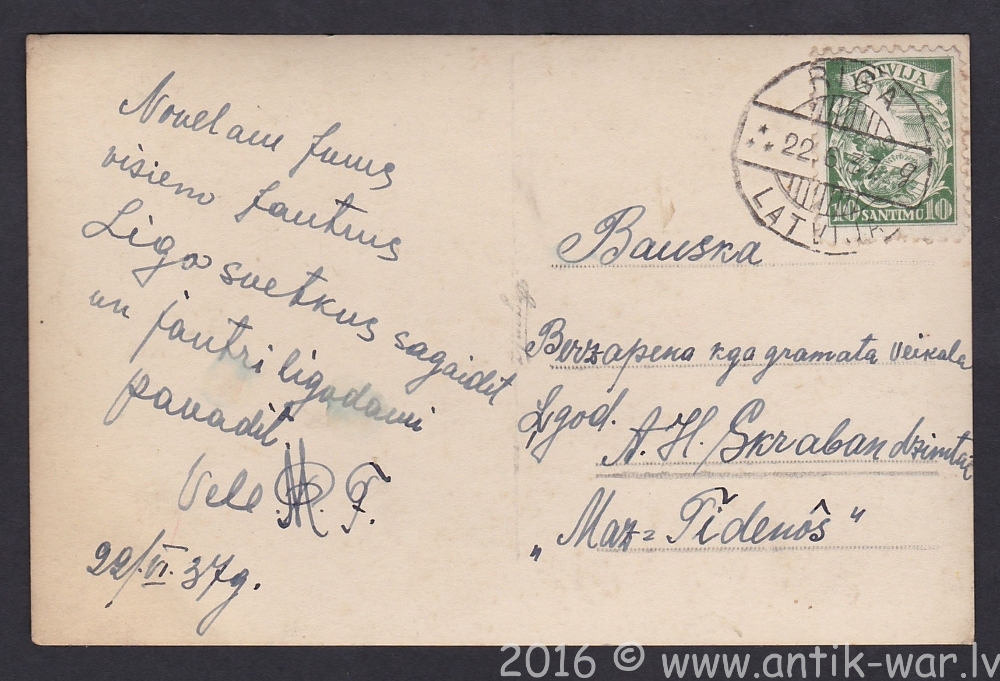 Novelam Jums
visiem jautrus
Līgo svetkus sagaidit
un jautri ligodami
pavadit.
Vele M. F.
22/VI. 37g.
RIGA
22.6.37
LATVIJA
LATVIJA
10 SANTIMU 10
Bauska
Berzapena kga gramata veikala
Ļ god. A. H. Skraban dzimtai
„Maz= Tīdenôs"
2016 © www.antik-war.lv